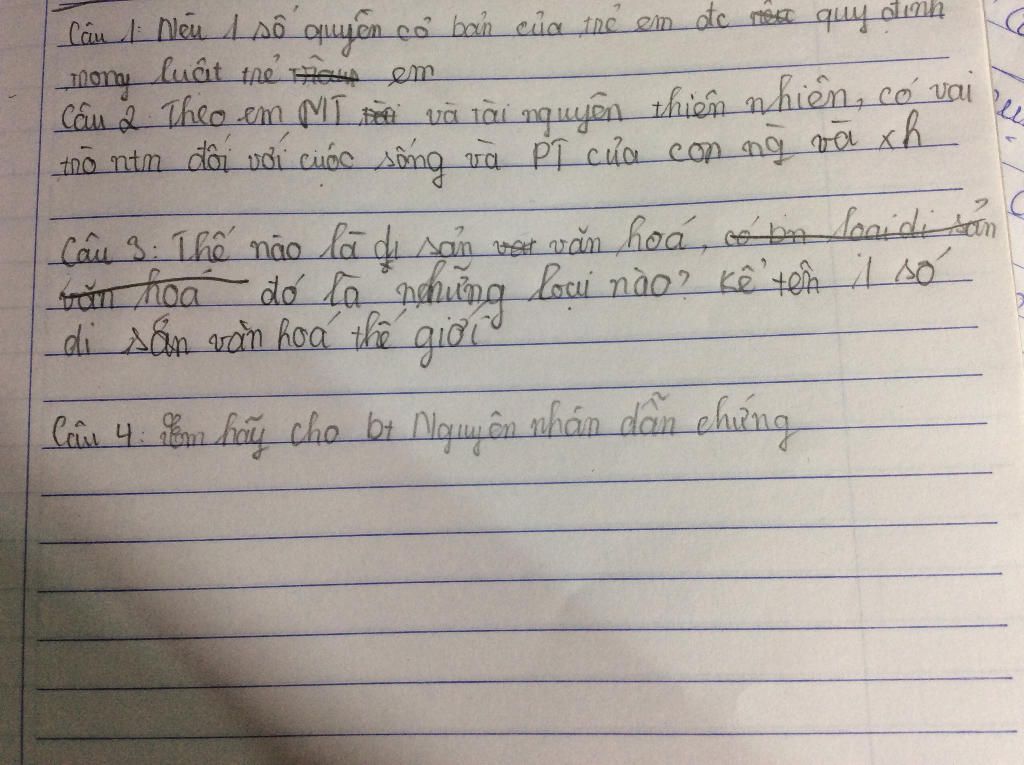 Câu 1: Nêu 1 số quyền cơ bản của trẻ em đc quy định
trong luật trẻ em
Câu 2 Theo em MT và tài nguyên thiên nhiên, có vai
trò ntn đối với cuộc sống và PT của con ng và xh
Câu 3: Thế nào là di sản văn hoá, có bn loại di sản
văn hoá đó là những loại nào? Kể tên 1 số
di sản văn hoá thế giới
Câu 4: em hãy cho bt Nguyên nhân dẫn chứng